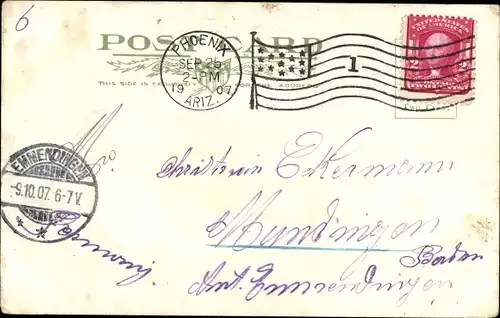 6
POST CARD
THIS SIDE IS EXCLUSIVELY FOR THE ADDRESS
PHOENIX
SEP 25
2-PM
1907
ARIZ.
1
2 2
EMMENDINGEN
-9.10.07. 6-7 V.
* *
Christian Eckermann
Mundingen
Baden
Amt. Emmendingen
Germany